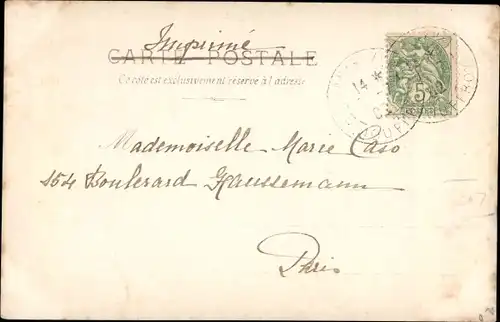 Imprimé
CARTE POSTALE
Ce côté est exclusivement réservé à l'adresse
14
5
Mademoiselle Marie Caso
154 Boulevard Haussemann
Paris